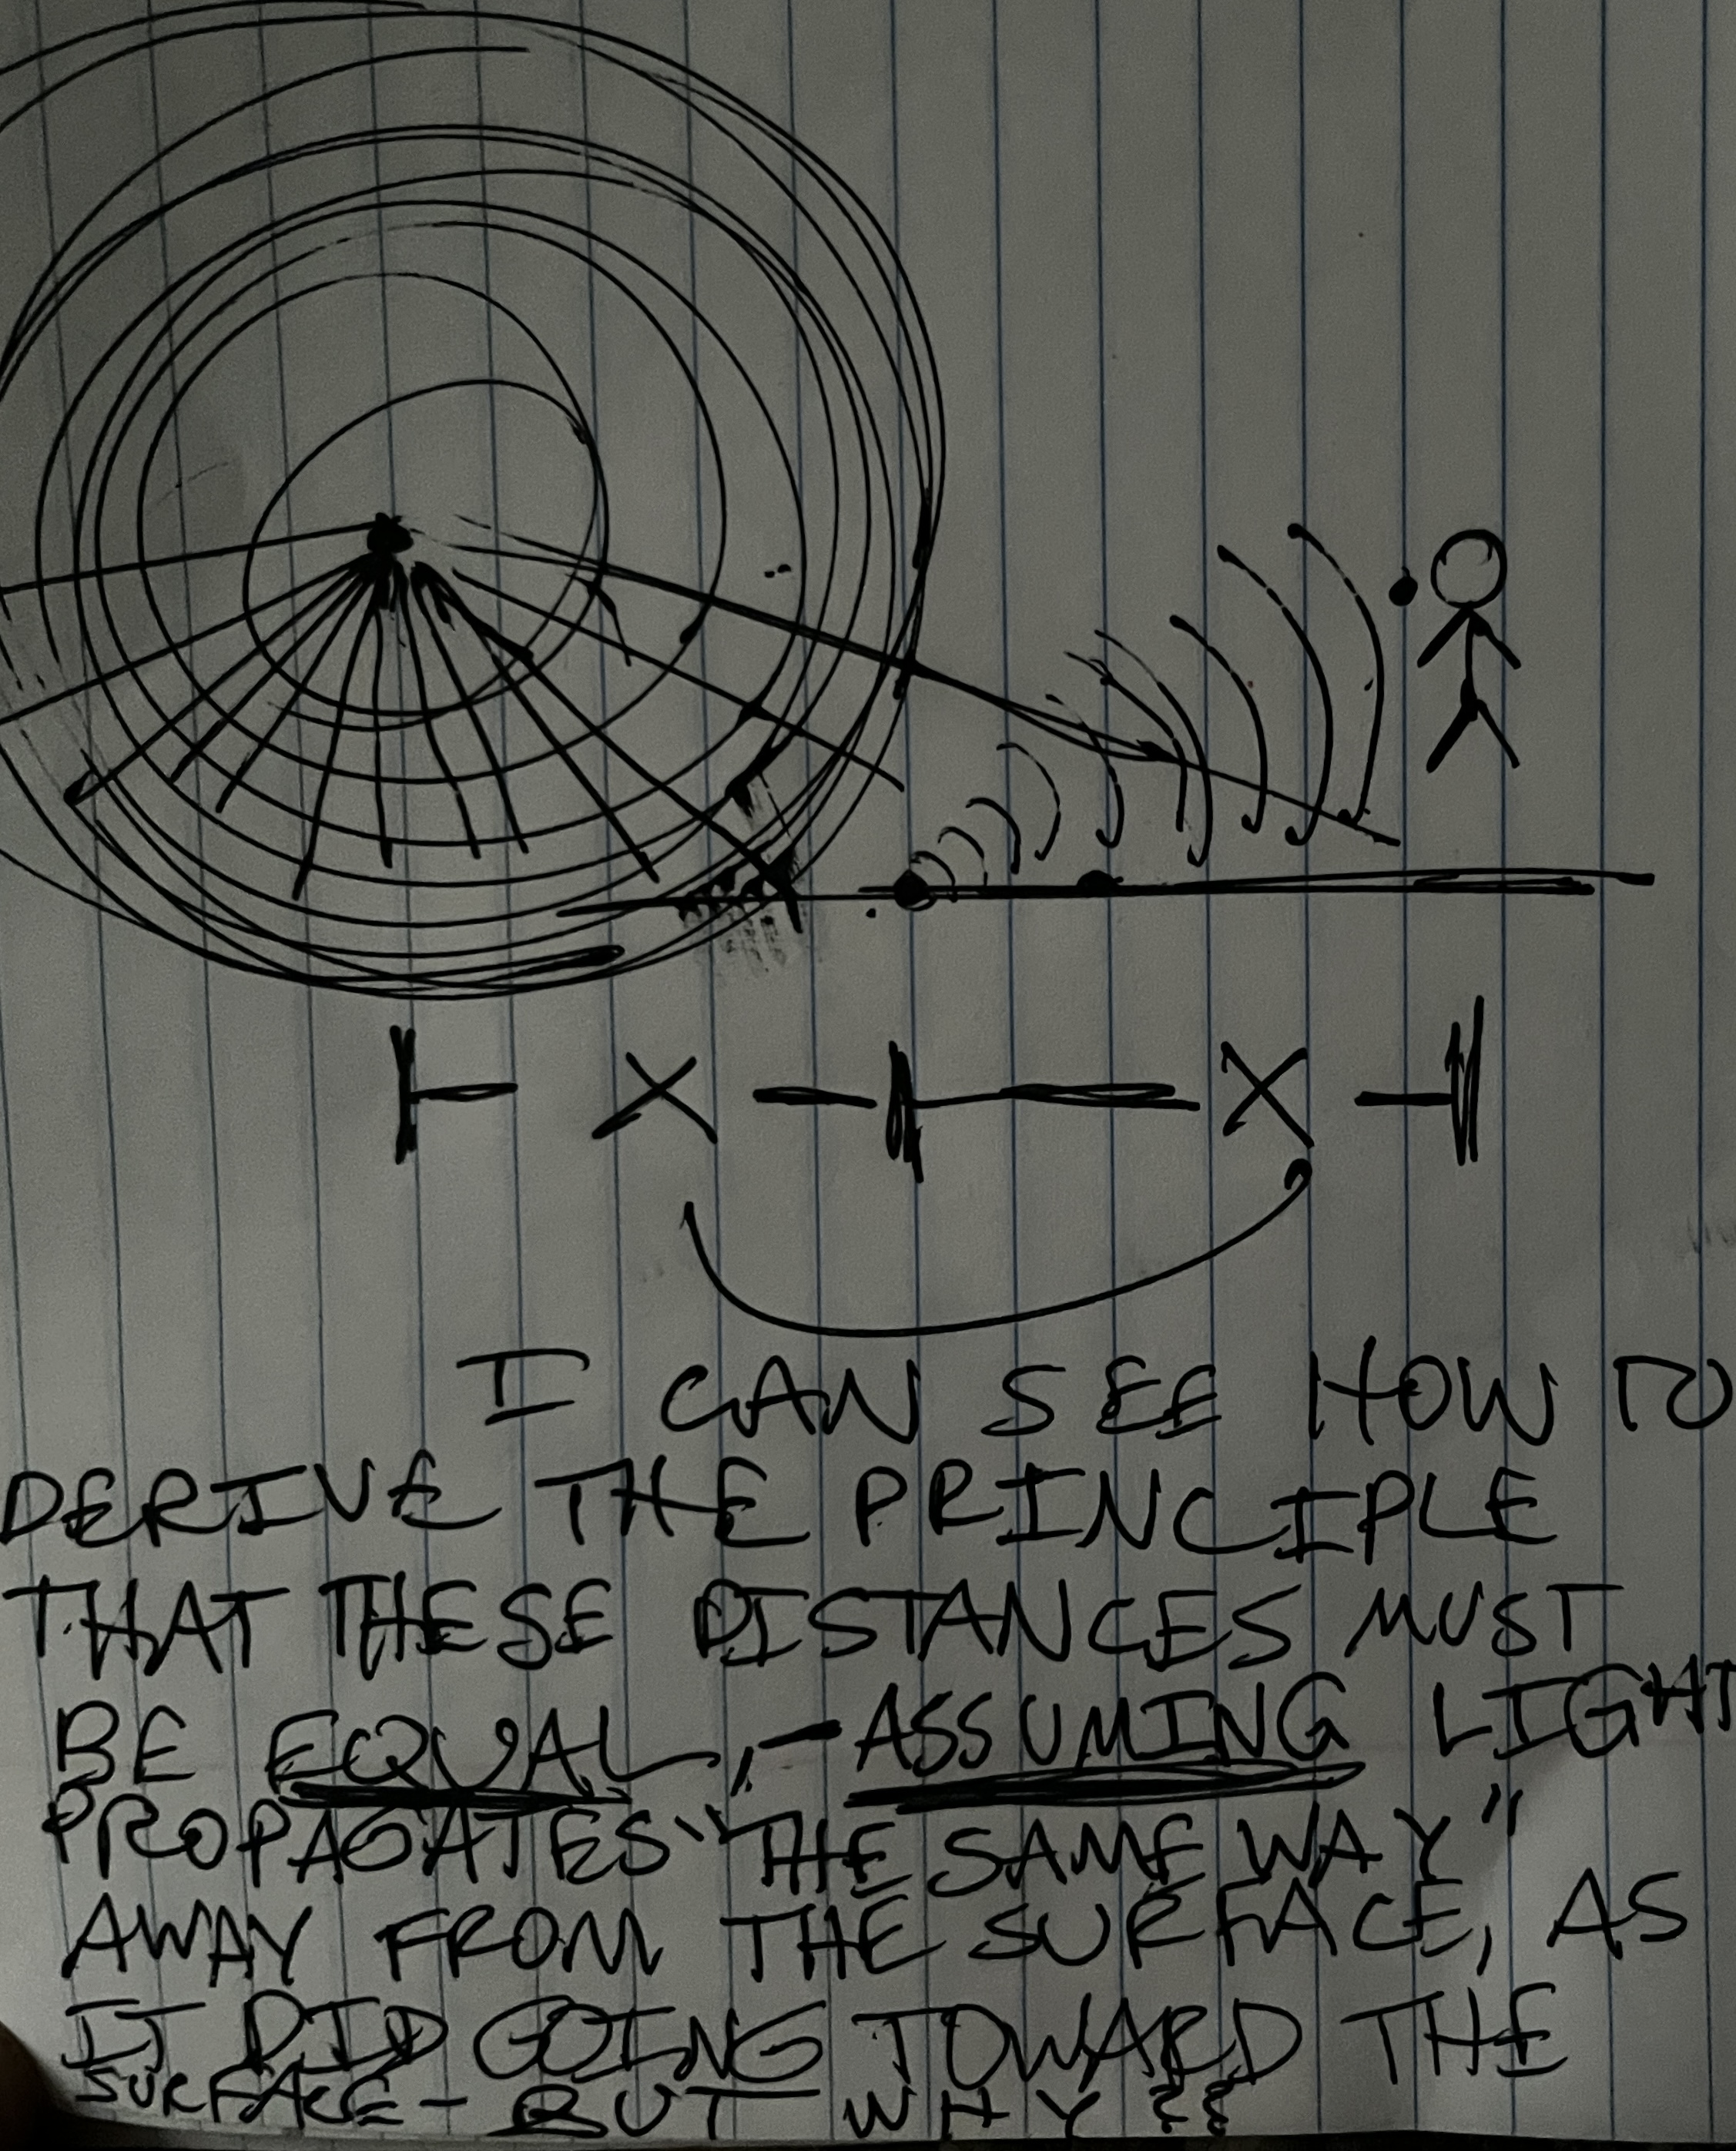 X X
I CAN SEE HOW TO
DERIVE THE PRINCIPLE
THAT THESE DISTANCES MUST
BE EQUAL, - ASSUMING LIGHT
PROPAGATES "THE SAME WAY"
AWAY FROM THE SURFACE, AS
IT DID GOING TOWARD THE
SURFACE - BUT WHY ??